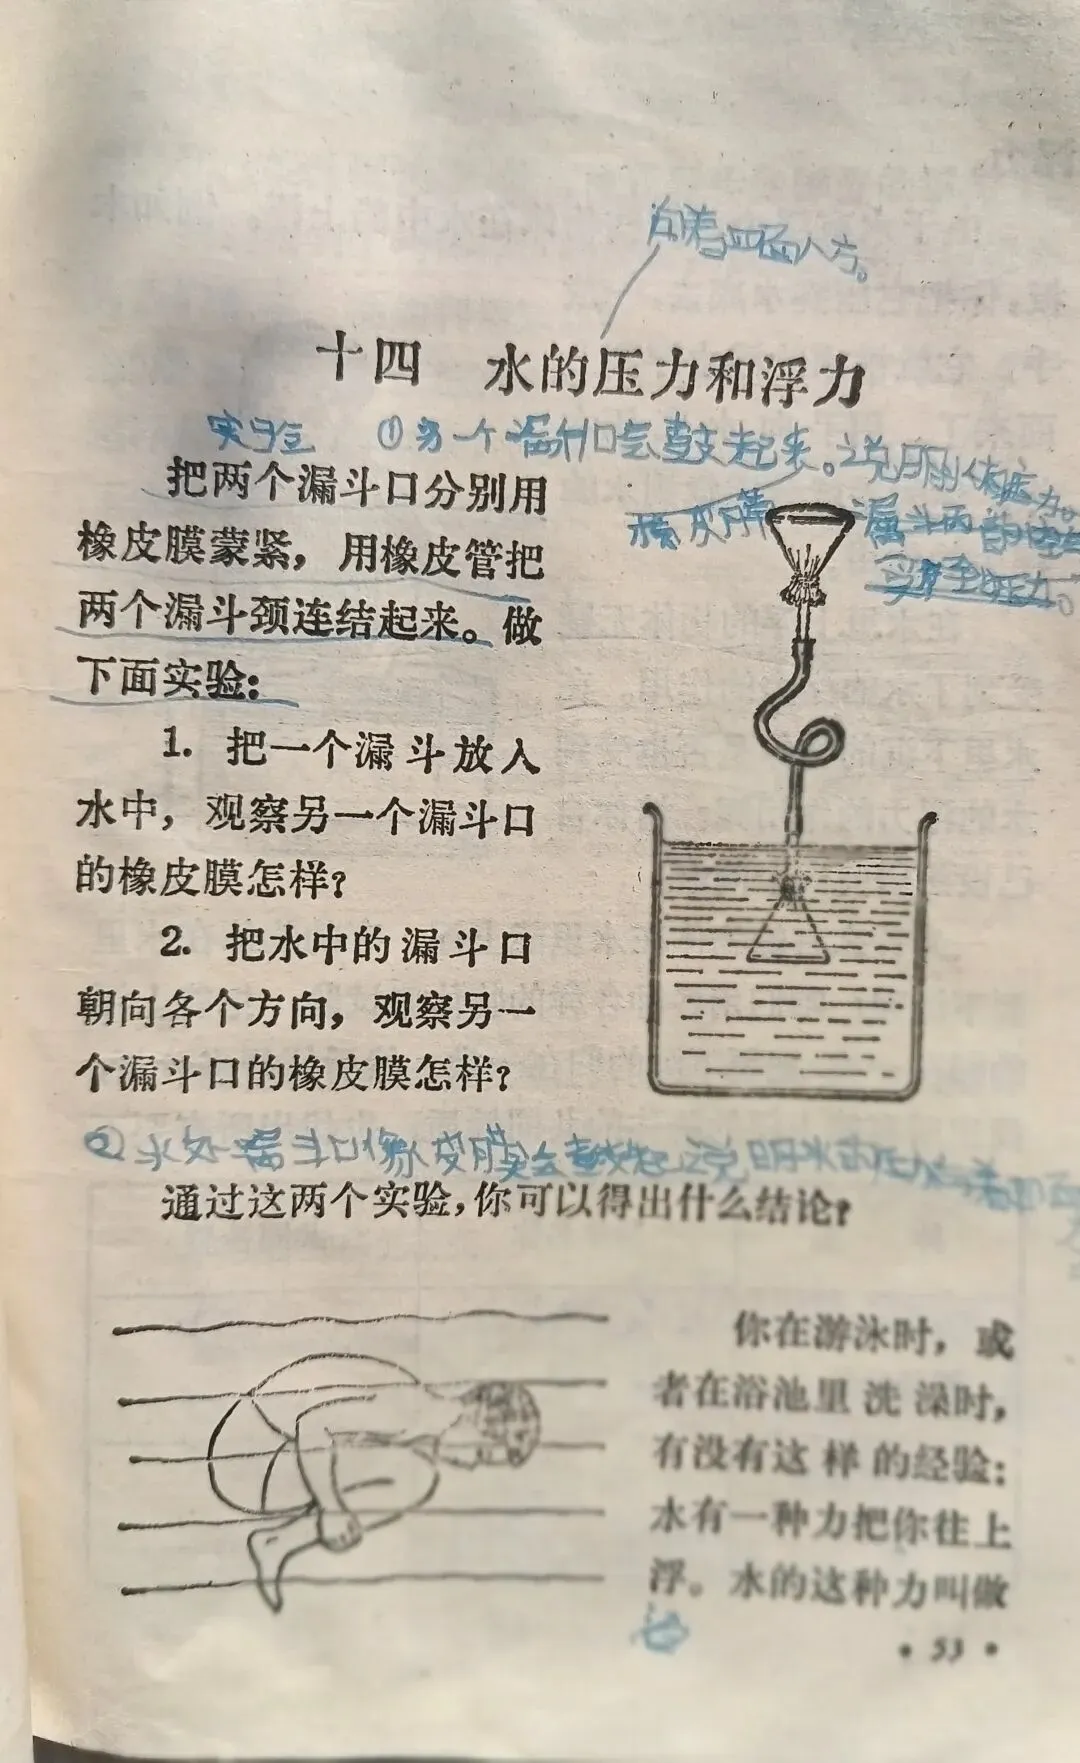 向着四面八方。
十四 水的压力和浮力
实验 ①另一个漏斗口会鼓起来。说明水有压力。
把两个漏斗口分别用
橡皮膜蒙紧，用橡皮管把
两个漏斗颈连结起来。做
下面实验：
橡皮膜
漏斗
1. 把一个漏斗放入
水中，观察另一个漏斗口
的橡皮膜怎样？
2. 把水中的漏斗口
朝向各个方向，观察另一
个漏斗口的橡皮膜怎样？
② 漏斗口像皮膜会鼓起 说明水的压力向着四面
通过这两个实验，你可以得出什么结论？
你在游泳时，或
者在浴池里洗澡时，
有没有这样的经验：
水有一种力把你往上
浮。水的这种力叫做
• 53 •